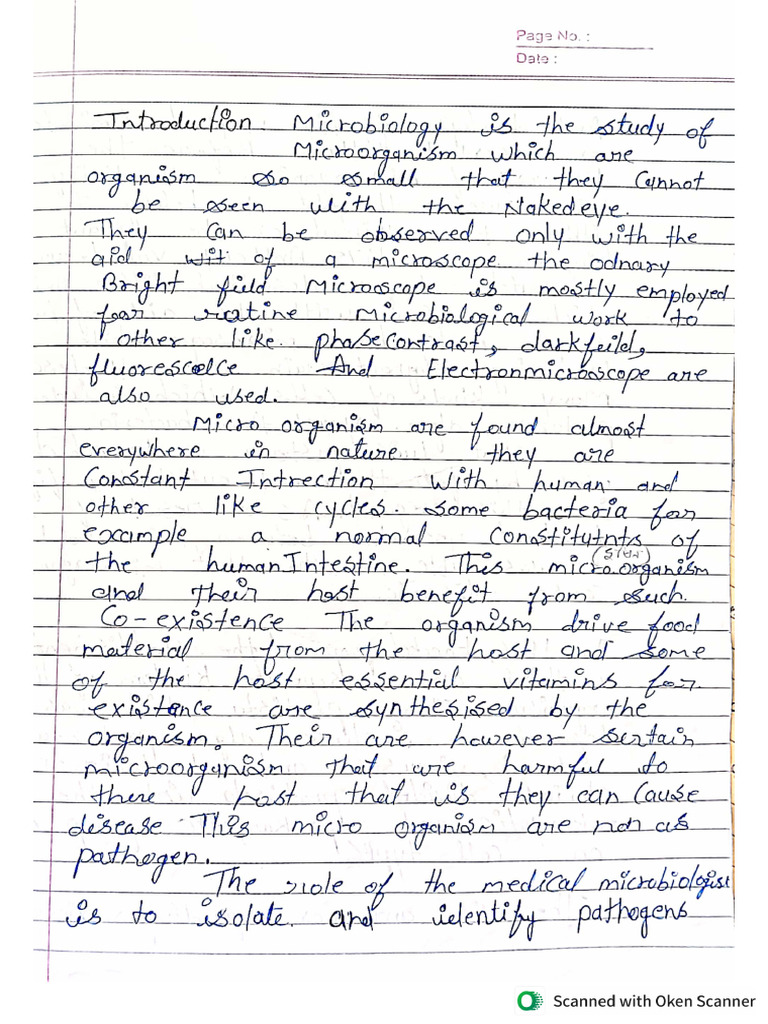 Page No. :
Date :
Introduction. Microbiology is the study of
Microorganism which are
organism so small that they cannot
be seen with the Naked eye.
They can be observed only with the
aid wit of a microscope the odnary
Bright field Microoscope is mostly employed
foar roatine Microbiological work to
other like phasecontrast, darkfeild,
And Electronmicrooscope are
also used.
Micro organism are found almost
everywhere in nature they are
Constant Intrection with human and
other like cycles. some bacteria for
example a normal Constitutnts of
the human Intestine. This microorganism
and their host benefit from such.
Co-existence The organism drive food
material from the host and some
of the host essential vitamins for
existence are synthesised by the
organism. Their are however sertain
microorganism that are harmful to
there host that is they can cause
disease This micro organism are non as
pathogen.
The role of the medical microbiologist
is to isolate and identify pathogens
Scanned with Oken Scanner